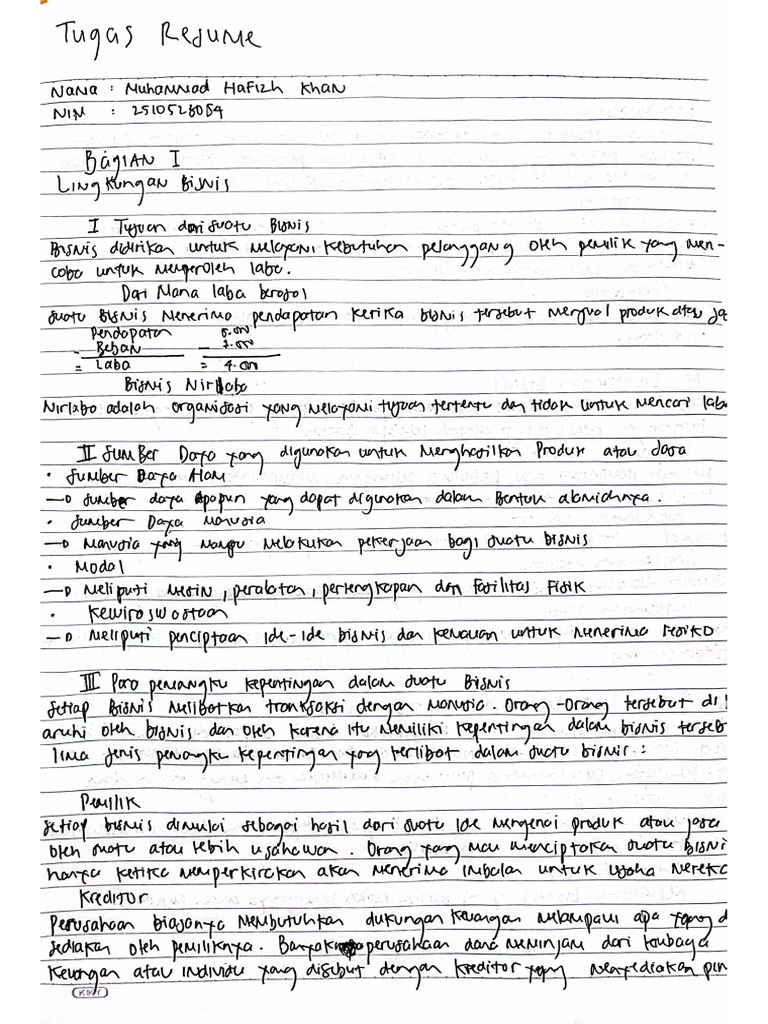 Tugas Resume
Nama : Muhammad Hafizh Khan
NIM : 2510528084
BAGIAN I
Lingkungan Bisnis
I Tujuan dari suatu Bisnis
Bisnis didirikan untuk melayani kebutuhan pelanggang oleh pemilik yang men-
coba untuk memperoleh laba.
Dari Mana laba berasal
Suatu Bisnis Menerima pendapatan ketika bisnis tersebut menjual produk atas ja
Pendapatan
- Beban
= Laba = 4.000
Bisnis Nirlaba
Nirlaba adalah organisasi yang melayani tujuan tertentu dan tidak untuk mencari laba
II Sumber Daya yang digunakan untuk Menghasilkan Produk atau Jasa
• Sumber Daya Alam
→ Sumber daya Apapun yang dapat digunakan dalam Bentuk alamiahnya.
• Sumber Daya Manusia
→ Manusia yang mampu melakukan pekerjaan bagi suatu bisnis
• Modal
→ Meliputi Mesin, peralatan, perlengkapan dan Fasilitas Fisik
• Kewiraswastaan
→ Meliputi penciptaan Ide-Ide bisnis dan kemauan untuk menerima resiko
III Para pemangku kepentingan dalam suatu Bisnis
Setiap Bisnis melibatkan transaksi dengan manusia. Orang-Orang tersebut di
aruhi oleh bisnis dan oleh karena itu memiliki kepentingan dalam bisnis terseb
lima jenis pemangku kepentingan yang terlibat dalam suatu bisnis :
Pemilik
Setiap bisnis dimulai sebagai hasil dari suatu Ide mengenai produk atau jasa
oleh suatu atau lebih usahawan. Orang yang mau menciptakan suatu bisni
hanya ketika memperkirakan akan menerima imbalan untuk usaha mereka
Kreditor
Perusahaan biasanya membutuhkan dukungan keuangan melampaui apa yang d
sediakan oleh pemiliknya. Banyak perusahaan dana meminjam dari lembaga
keuangan atau individu yang disebut dengan kreditor yang menyediakan pin
KIKY